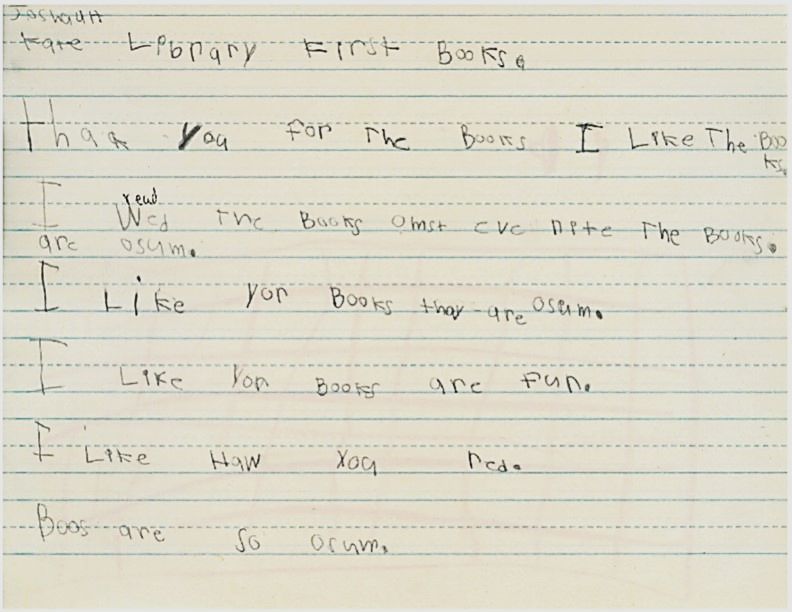 JoshauH
Kate Lipbrary First Books.
Thaa you for The Books I Like The Boo
ks.
read
I Wed The Books omst eve nite The Books.
are osum.
I Like yor Books thay-are osum.
I Like Yor Books are Fun.
I Like Haw You red.
Boos are so osum.